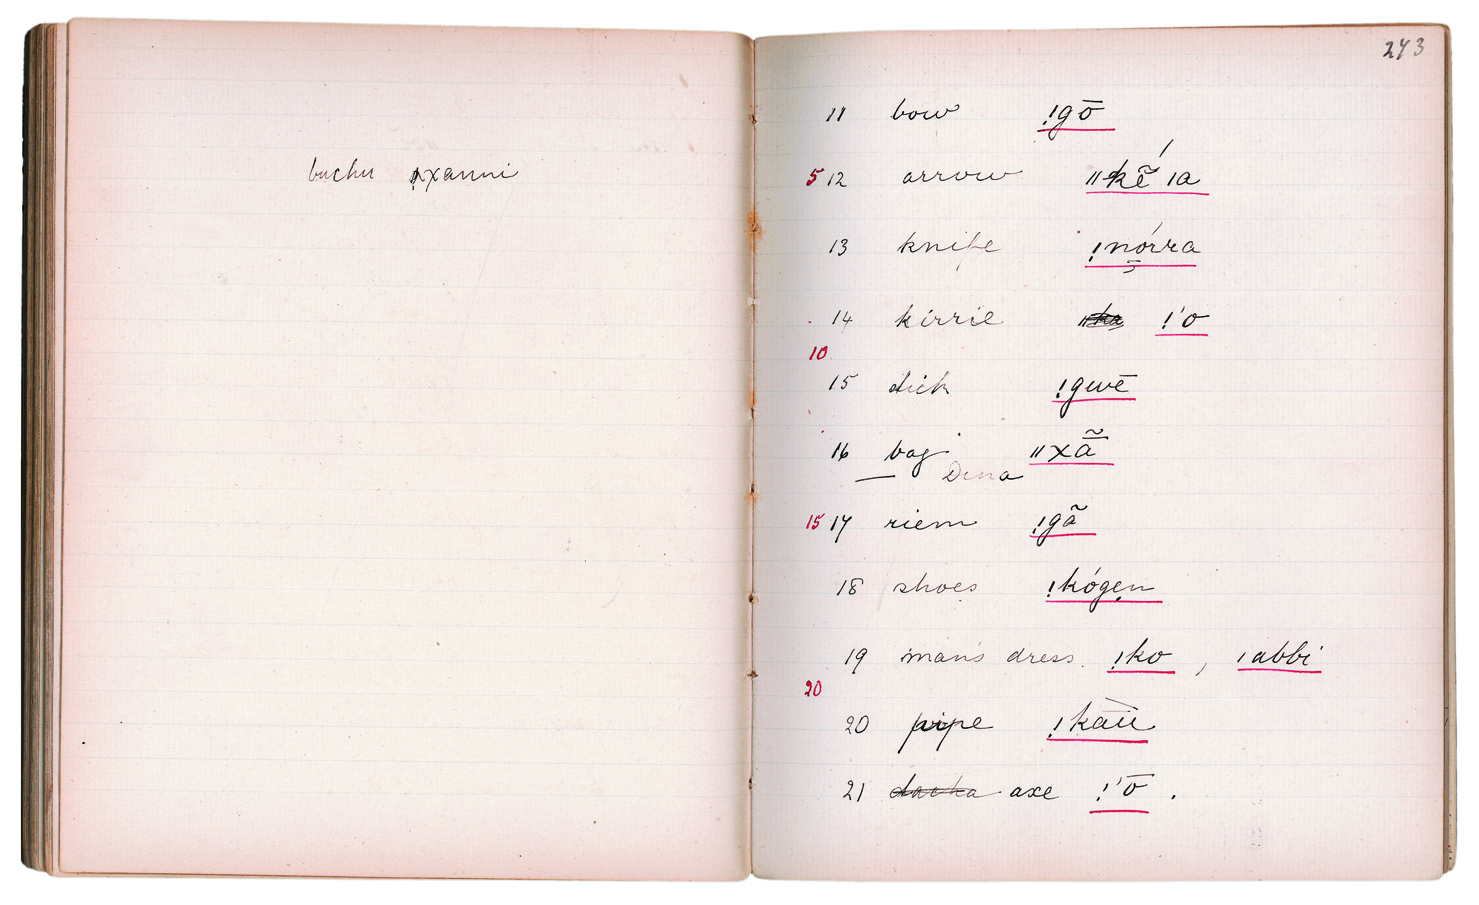 buchu ϯxanni
243
11 bow !gō
5 12 arrow ǁkẽ́ ǀa
13 knife !nórra
14 kirrie ǁka !'o
10
15 stick !gwē
16 bag ǁxã̄
— Dena
15 17 riem !gã
18 shoes !kógen
19 man's dress. !ko , ǀabbi
20
20 pipe !kāū
21 dacha axe !'ō .